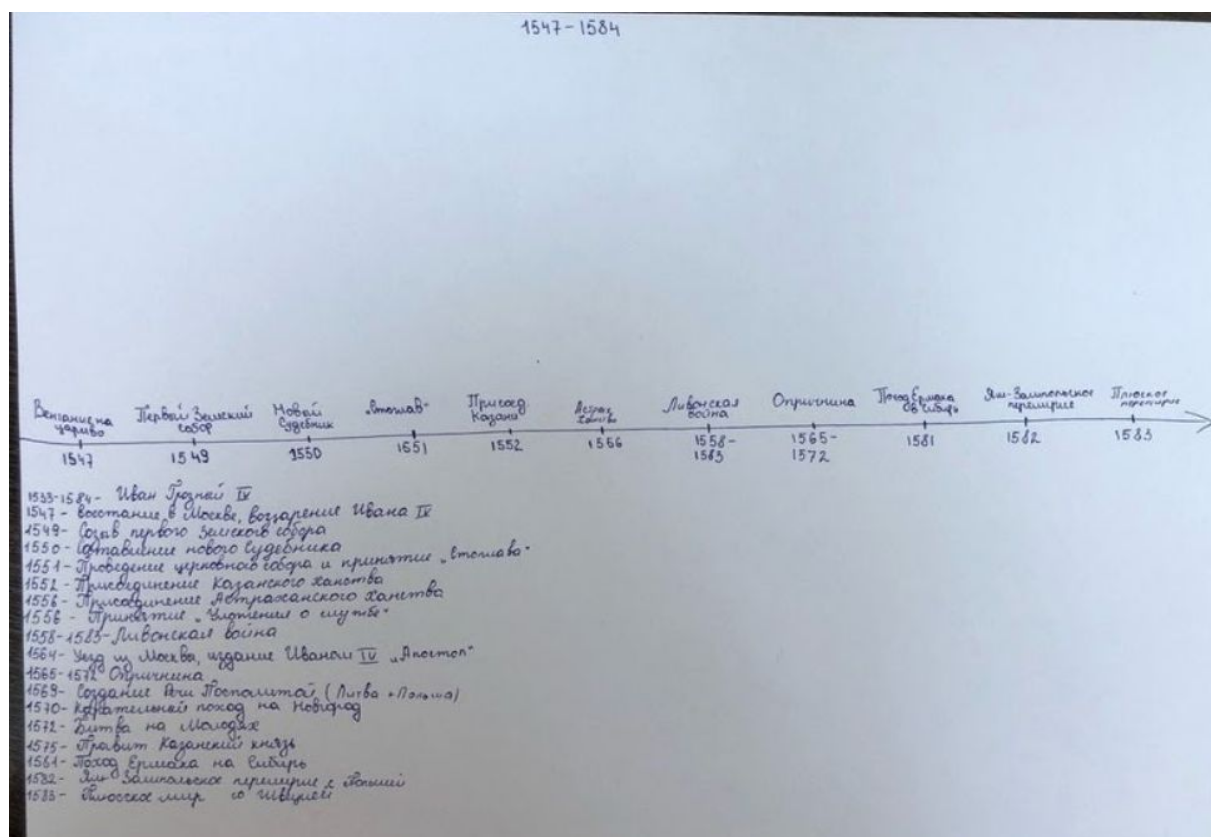 1547-1584
Венчание на царство
Первый Земский собор
Новый Судебник
„Стоглав"
Присоед. Казани
Астрах. ханство
Ливонская война
Опричнина
Поход Ермака в Сибирь
Ям-Запольское перемирие
Плюсское перемирие
1547
1549
1550
1551
1552
1556
1558-1583
1565-1572
1581
1582
1583
1533-1584- Иван Грозный IV
1547- Восстание в Москве, воцарение Ивана IV
1549- Созыв первого Земского собора
1550- Составление нового Судебника
1551- Проведение церковного собора и принятие „Стоглава"
1552- Присоединение Казанского ханства
1556- Присоединение Астраханского ханства
1556 - Принятие „Уложения о службе"
1558-1583- Ливонская война
1564- Уезд из Москва, издание Иваном IV „Апостол"
1565-1572 Опричнина
1569- Создание Речи Посполитой (Литва + Польша)
1570- Карательный поход на Новгород
1572- Битва на Молодях
1575- Правит Казанский князь
1581- Поход Ермака на Сибирь
1582- Ям-Запольское перемирие с Польшей
1583- Плюсское мир со Швецией